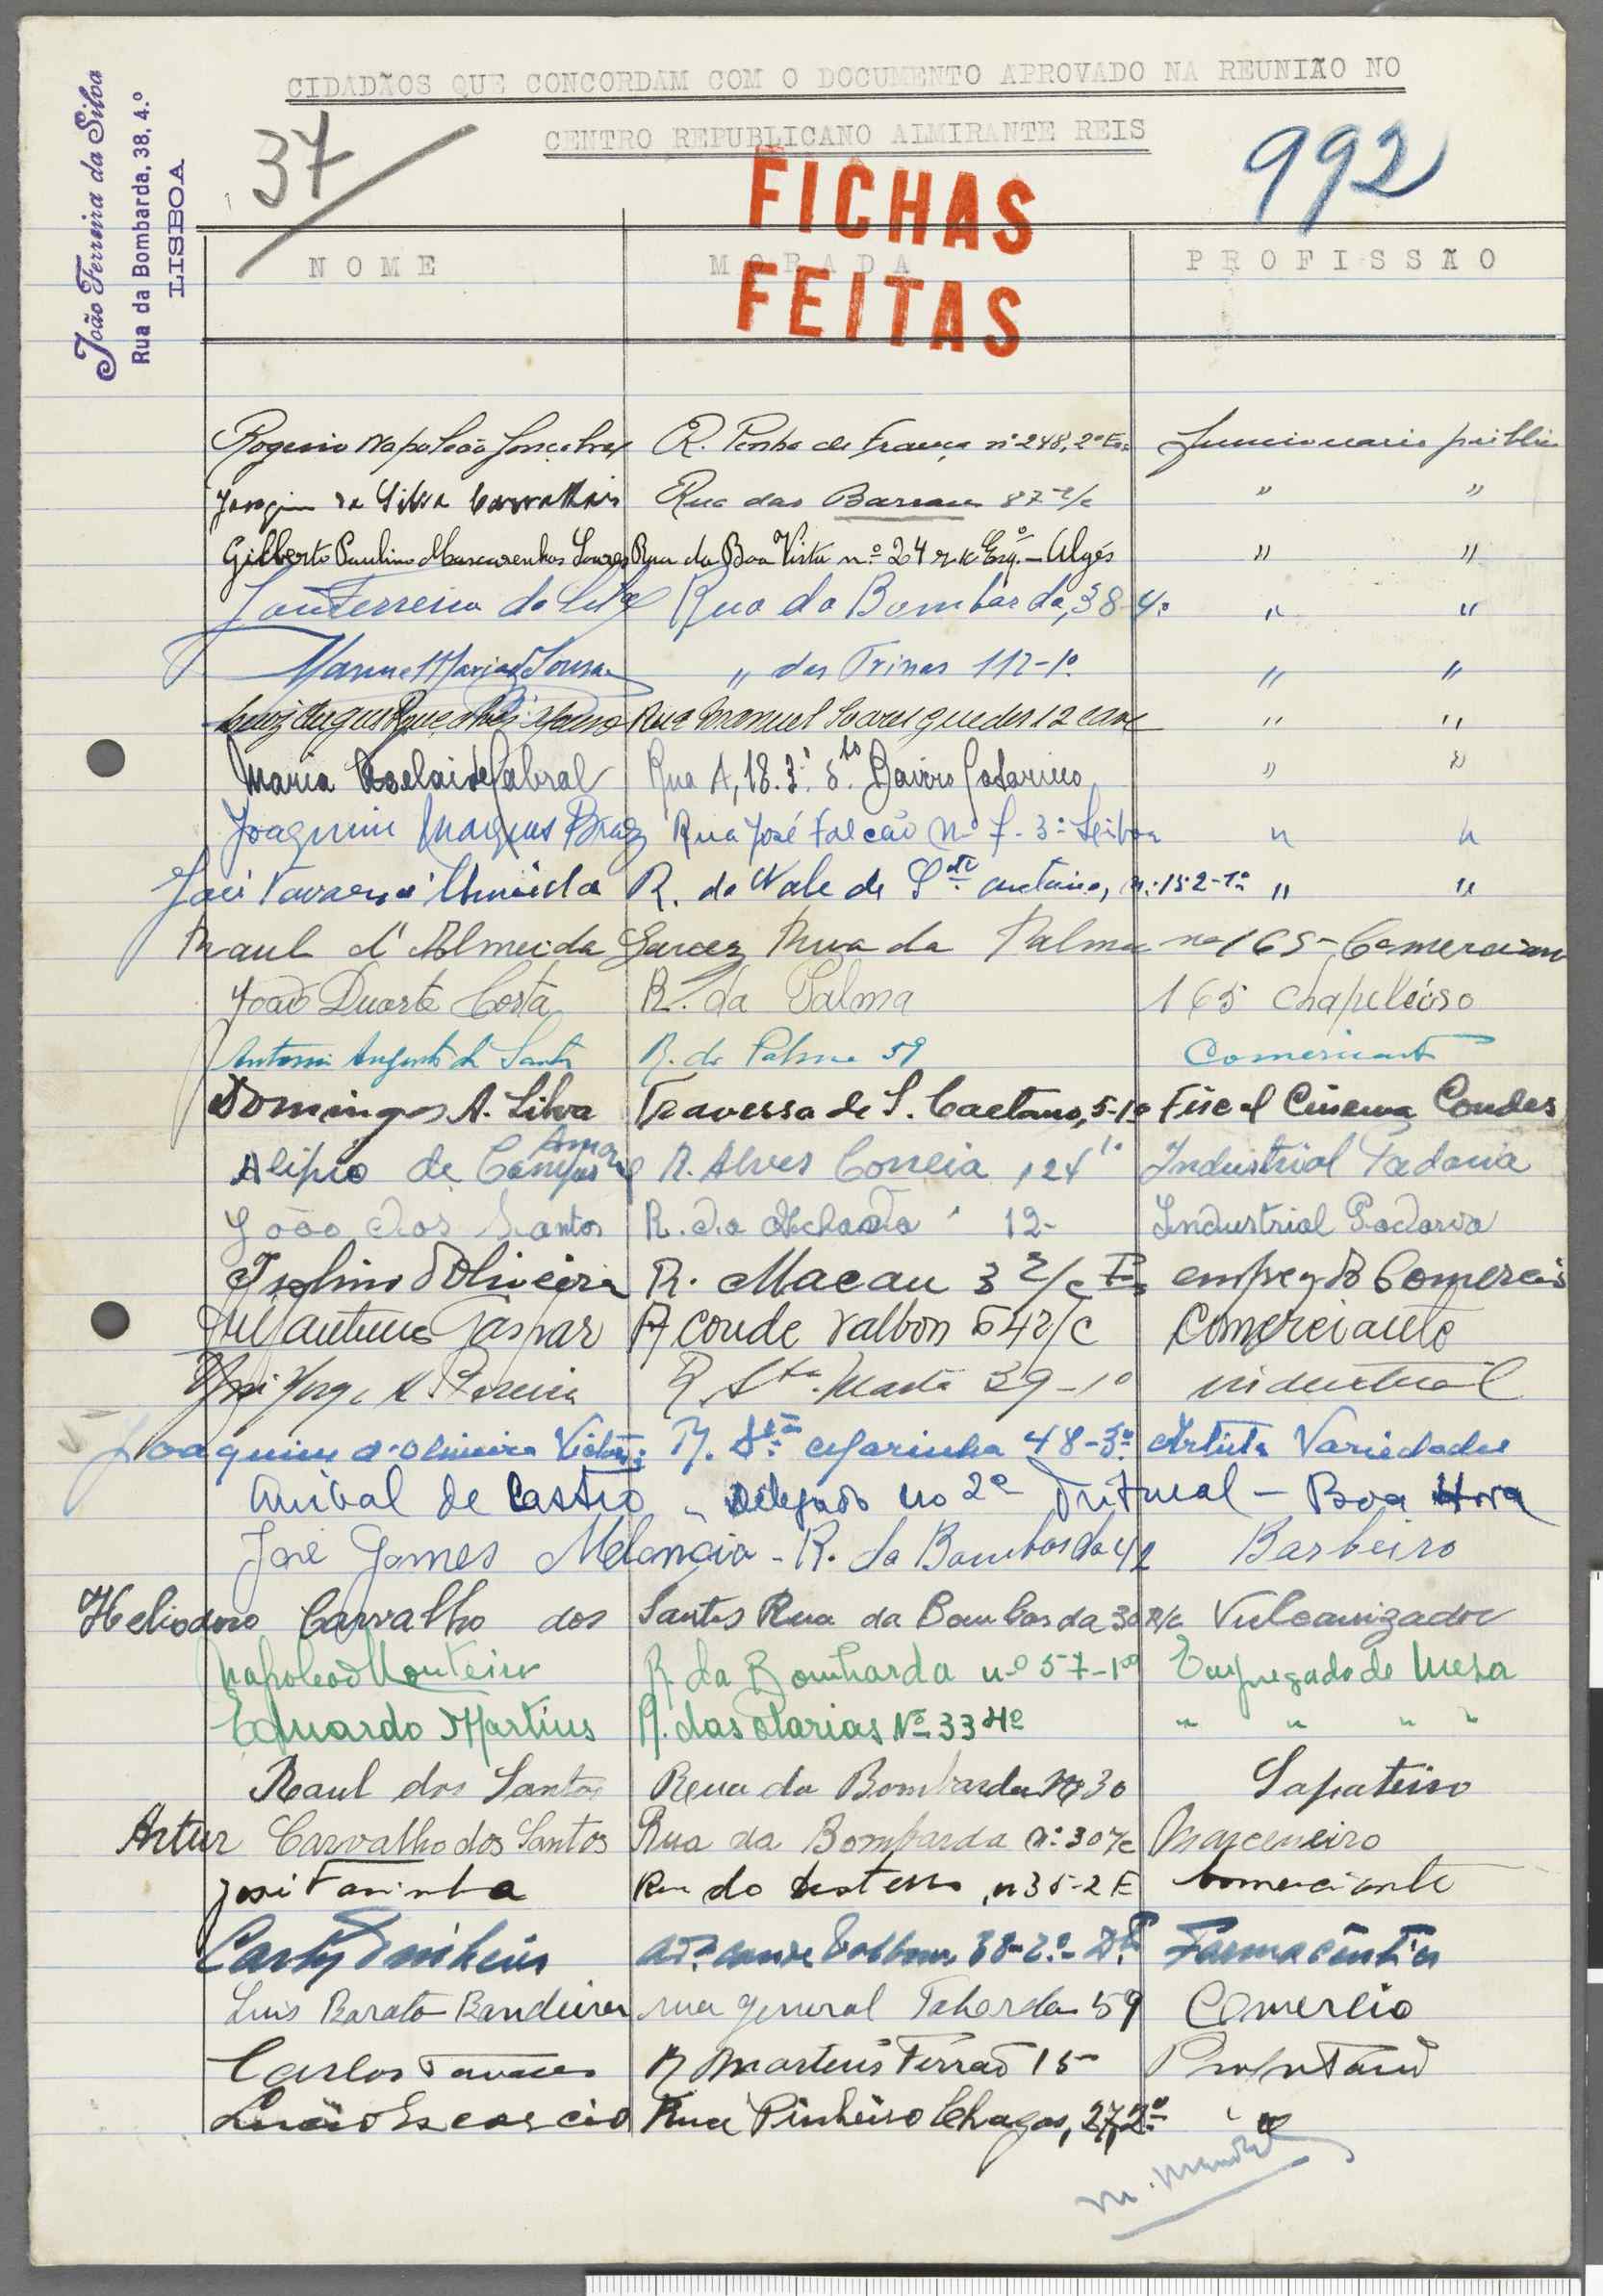 João Ferreira da Silva
Rua da Bombarda, 38, 4.º
LISBOA
CIDADÃOS QUE CONCORDAM COM O DOCUMENTO APROVADO NA REUNIÃO NO
CENTRO REPUBLICANO ALMIRANTE REIS
37
992
FICHAS
FEITAS
NOME MORADA PROFISSÃO
Rogerio Napoleão Gonçalves R. Penha de França nº 248, 2º Funcionario publico
da Silva Rua das 87 r/c " "
Gilberto Paulino Mascarenhas Soares Rua da Boa Vista nº 24 r/c Esqº. - Algés " "
João Ferreira da Silva Rua da Bombarda, 38-4º " "
Manuel Maria Sousa " das Trinas 112-1º " "
Rua Manuel Soares Guedes 12 cave " "
Maria Adelaide Cabral Rua A, 18. 3.º Bairro " "
Joaquim Marques Braz Rua José Falcão Nº 7-3º Lisboa " "
José Tavares d'Almeida R. do Vale de Stº Antonio, nº 152-1º " "
Raul d'Almeida Garcez Rua da Palma nº 165 - Comerciante
João Duarte Costa R. da Palma 165 Chapeleiro
Antonio Augusto de Santos R. da Palma 59 Comerciante
Domingos A. Silva Travessa de S. Caetano, 5-1º Fiscal Cinema Condes
Alipio de Campos Amaral R. Alves Correia 124 1º Industrial Padaria
João dos Santos R. da Achada 12- Industrial Padaria
d'Oliveira R. Macau 3 r/c E empregdº Comercio
Antunes Gaspar A Conde Valbom 54 r/c Comerciante
Jorge A. Pereira R. Sta. Marta 39-1º industrial
Joaquim d'Oliveira R. Stª Marinha 48-3º Artista Variedades
Anibal de Castro - Delegado no 2º Tribunal - Boa Hora
José Gomes Melancia - R. da Bombarda 42 Barbeiro
Heliodoro Carvalho dos Santos Rua da Bombarda 30 R/c Vulcanizador
Napoleão Monteiro R. da Bombarda nº 57-1º Empregado de Mesa
Eduardo Martins R. das Olarias Nº 33 4º " " " "
Raul dos Santos Rua da Bombarda Nº 30 Sapateiro
Artur Carvalho dos Santos Rua da Bombarda Nº 30 r/c Marceneiro
José Farinha Rua do nº 35-2 E Comerciante
Carlos Avª Conde Valbom 38-2º-Dtº Farmacêutico
Luis Barata Bandeira rua General Taborda 59 Comercio
Carlos Tavares R Martens Ferrão 15
Lucio Escorcio Rua Pinheiro Chagas, 27, 2º "